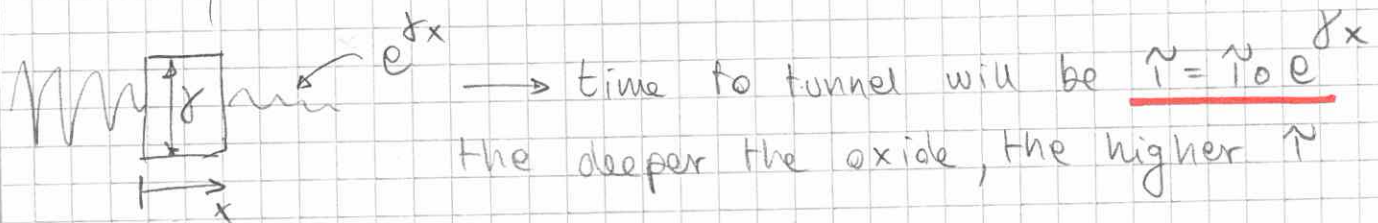 e^γx
γ
→ time to tunnel will be τ = τ₀ e^γx
the deeper the oxide, the higher τ
x